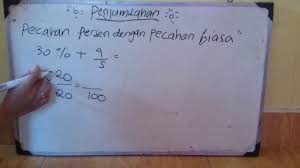 "b= Penjumlahan =a
"Pecahan persen dengan pecahan biasa"
30 % + 9/5 =
20/20 = /100